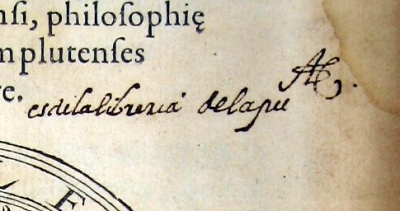 nsi, philosophię
mplutenses
re.
es de la libreria de la pu
L E